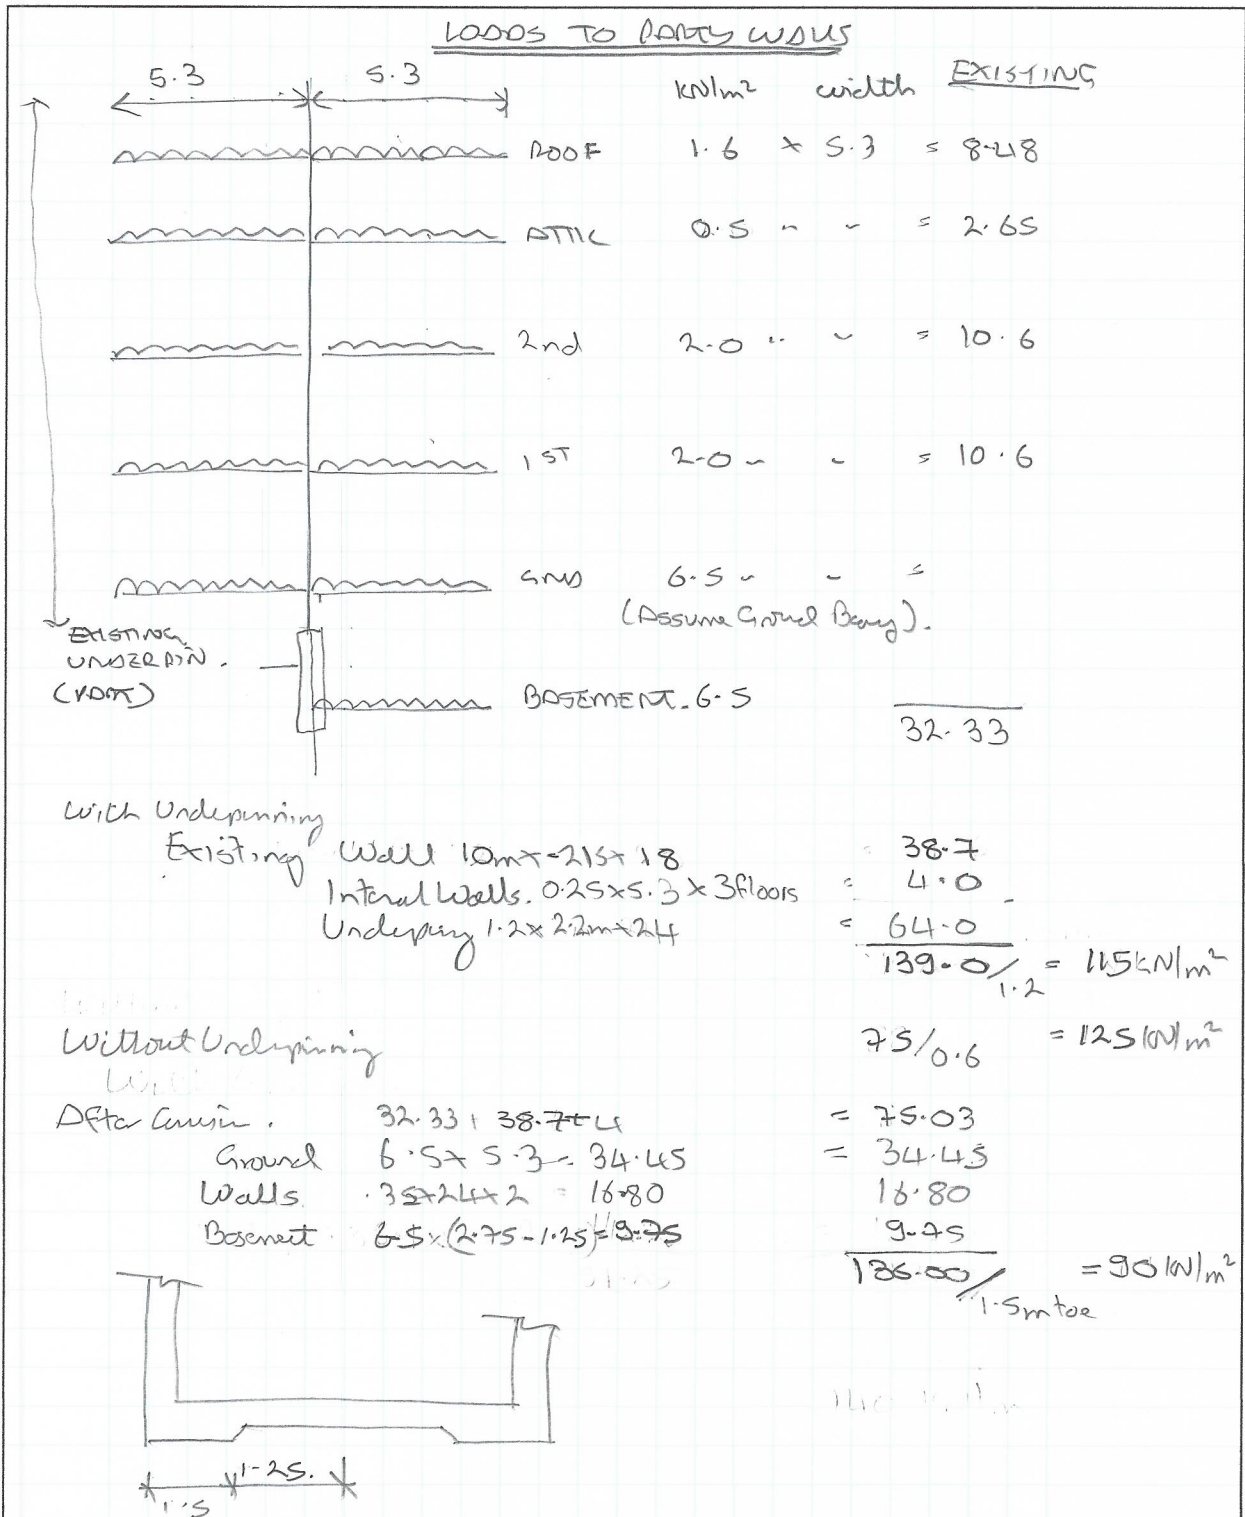 LOADS TO PARTY WALLS
5.3 5.3 kN/m² width EXISTING
ROOF 1.6 x 5.3 = 8.48
ATTIC 0.5 " " = 2.65
2nd 2.0 " " = 10.6
1ST 2.0 " " = 10.6
GND 6.5 " " =
(Assume Ground
EXISTING
UNDERPIN.
(PART)
BASEMENT. 6.5
32.33
With Underpinning
Existing Wall 10m x .215 x 18 = 38.7
Internal Walls. 0.25 x 5.3 x 3 floors = 4.0
1.2 x 2.2m x 24 = 64.0
139.0/1.2 = 115 kN/m²
Without Underpinning 75/0.6 = 125 kN/m²
After 32.33 + 38.7 + 4 = 75.03
Ground 6.5 x 5.3 = 34.45 = 34.45
Walls .35 x 24 x 2 = 16.80 16.80
Basement 6.5 x (2.75 - 1.25) = 9.75 9.75
136.00/1.5m toe = 90 kN/m²
1.5 1.25.